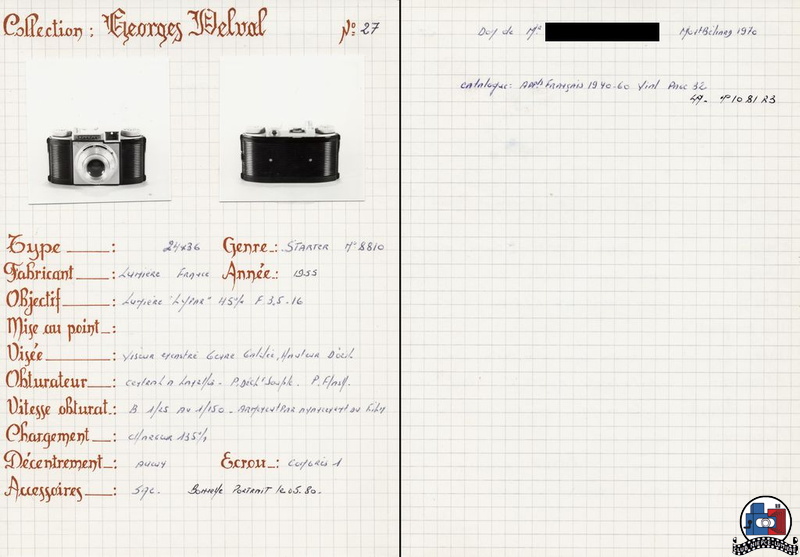 Collection : Georges Delval N°: 27
Type : 24x36 Genre : STARTER N° 8810
Fabricant : LUMIÈRE FRANCE Année : 1955
Objectif : LUMIÈRE "LYPAR" 45% F 3,5-16
Mise au point :
Visée : Viseur Genre Galilée, Hauteur D'oeil
Obturateur : central à - P. Souple - P. Flash.
Vitesse obturat. : B 1/25 AU 1/150 - ARMEMENT PAR AVANCEMENT DU FILM
Chargement : CHARGEUR 135%
Décentrement : Ecrou :
Accessoires : SAC. BONNETTE PORTRAIT 16.05.80.
Don de Mr 1970
Catalogue: APPts Français 1940-60 Vial PAGE 32
N° 108123